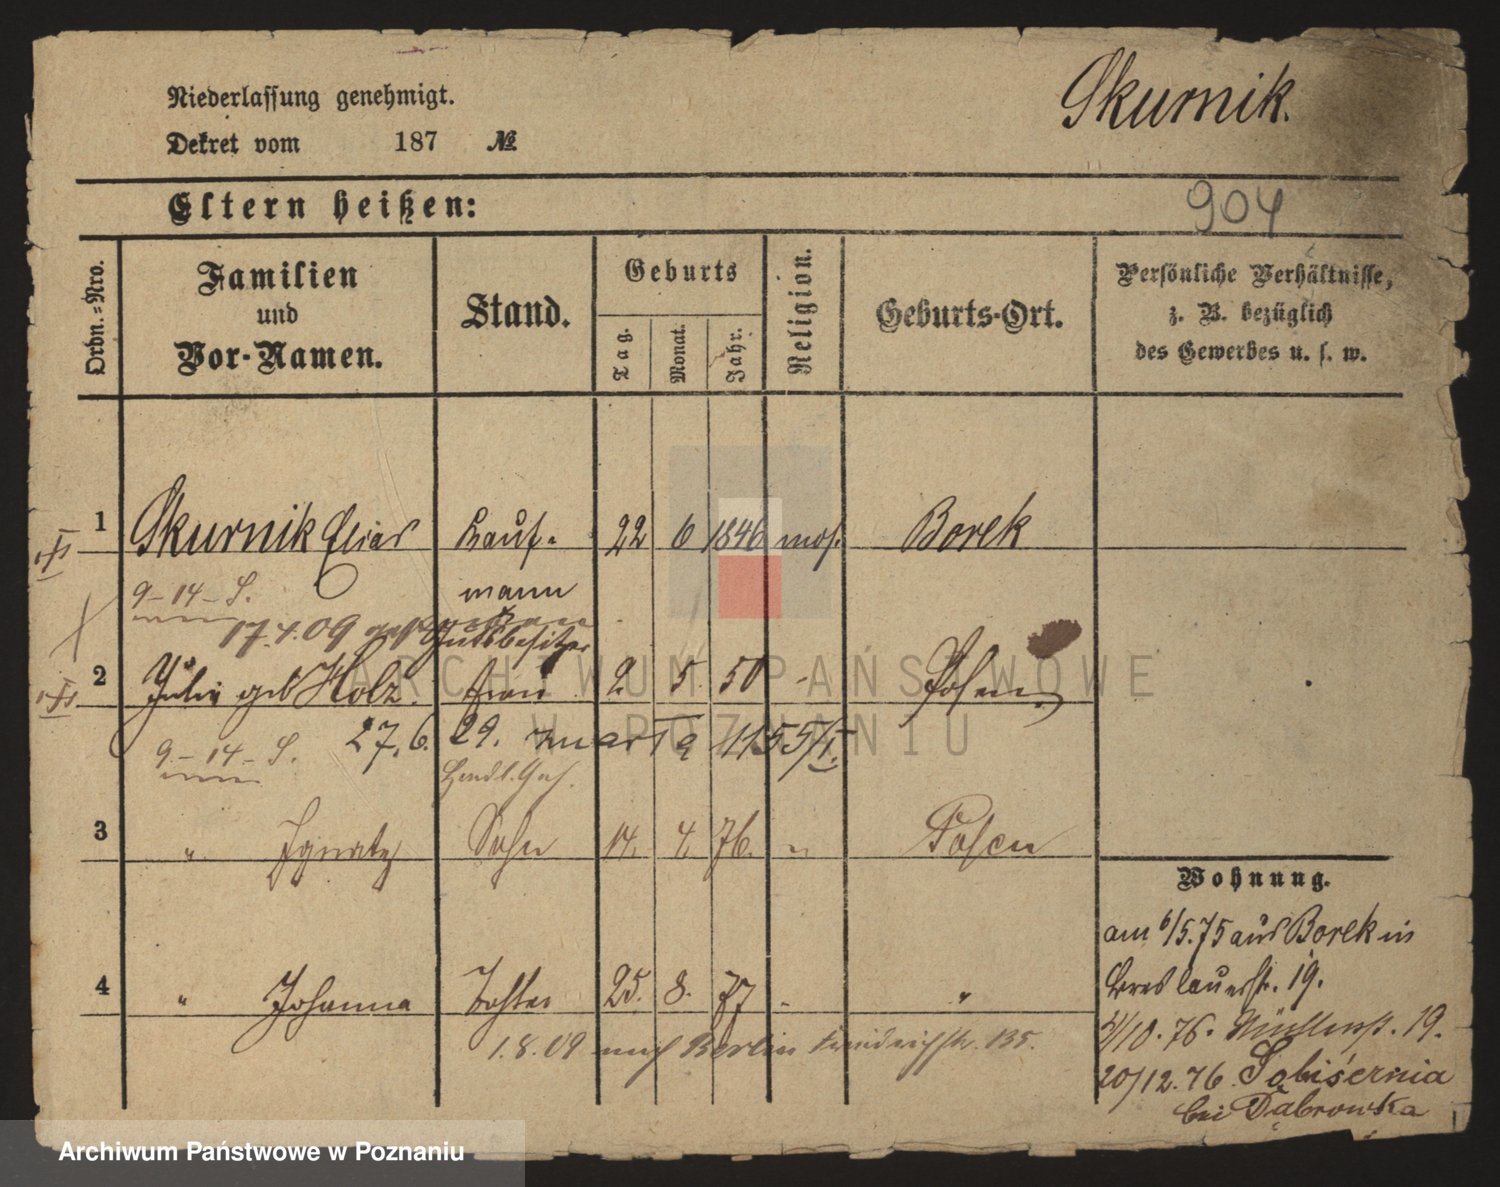 Niederlassung genehmigt.
Skurnik.
Dekret vom 187 №
Eltern heißen:
904
Ordn.-Nro.
Familien und Vor-Namen.
Stand.
Geburts
Tag.
Monat.
Jahr.
Religion.
Geburts-Ort.
Persönliche Verhältnisse,
z. B. bezüglich
des Gewerbes u. s. w.
1 Skurnik Elias Kauf- 22 6 1846 mos. Borek
9-14-S. mann
17.4.09 Gutsbesitzer
2 Julie geb Holz. Frau 2 5. 50 - Posen.
9-14-S. 27.6. 29.
Handl. Geh.
3 " Ignatz Sohn 14. 4. 76. " Posen
4 " Johanna Tochter 25. 8. 77 " "
1.8.09 nach Berlin Friedrichstr. 135.
Wohnung.
am 6/5.75 aus Borek in
Breslauerstr. 19.
/10.76. 19.
20/12.76. Sobiśernia
bei Dąbrowka
ARCHIWUM PAŃSTWOWE
W POZNANIU
Archiwum Państwowe w Poznaniu